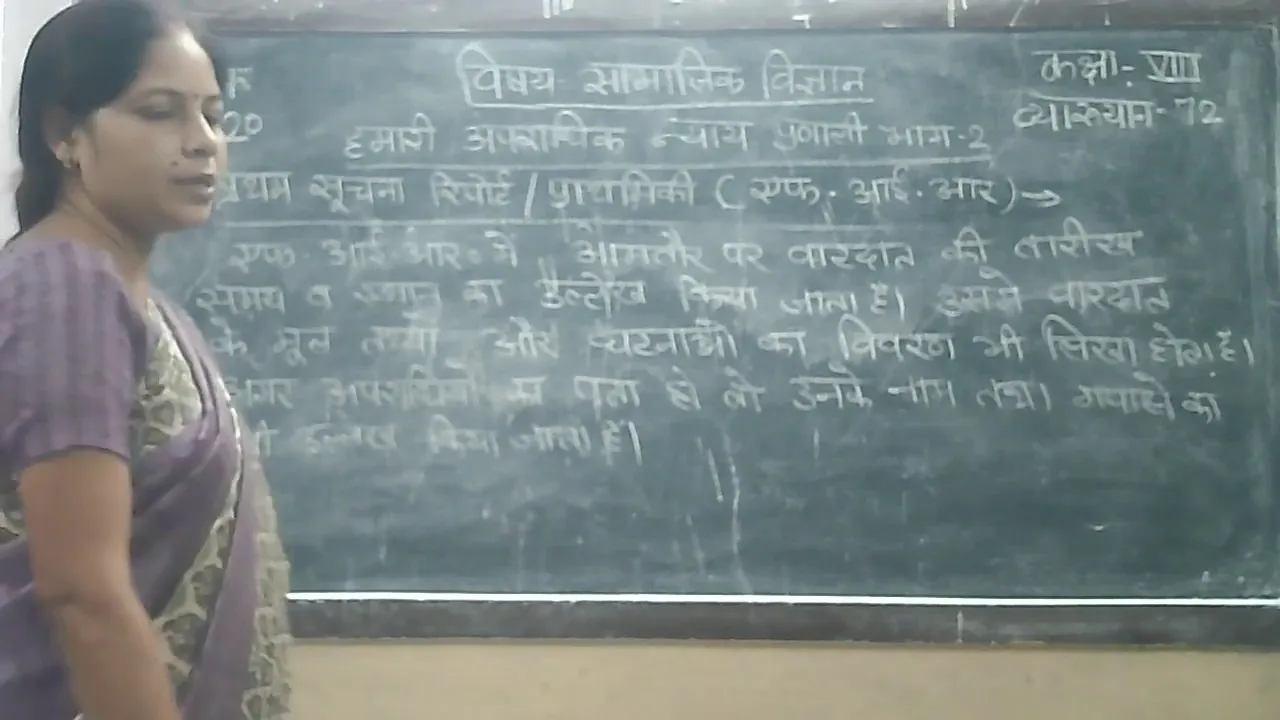 विषय- सामाजिक विज्ञान
कक्षा- VIII
20
व्याख्यान- 72
हमारी अपराधिक न्याय प्रणाली भाग-2
प्रथम सूचना रिपोर्ट / प्राथमिकी (एफ. आई. आर) →
एफ. आई. आर. में आमतौर पर वारदात की तारीख
समय व स्थान का उल्लेख किया जाता है। उसमे वारदात
के मूल तथ्यों और घटनाओं का विवरण भी लिखा होता है।
अगर अपराधियों का पता हो तो उनके नाम तथा गवाहों का
उल्लेख किया जाता है।